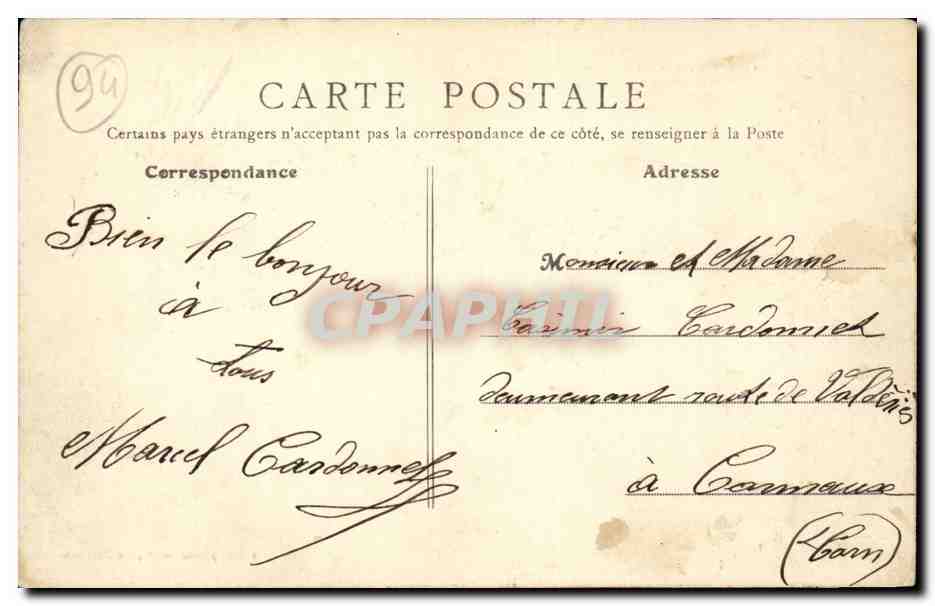 94
CARTE POSTALE
Certains pays étrangers n'acceptant pas la correspondance de ce côté, se renseigner à la Poste
Correspondance
Adresse
Bien le bonjour
à
tous
Marcel Cardonnel
Monsieur et Madame
Casimir Cardonnel
deumeurant route de Valdériès
à Carmaux
(Tarn)
CPAPHIL